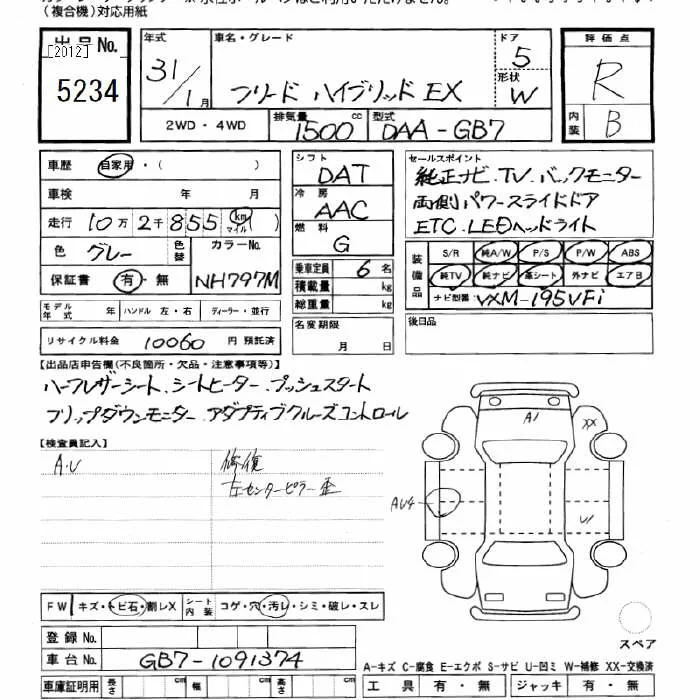 （複合機）対応用紙
出品No.
[2012]
5234
年式
31/1月
車名・グレード
フリード ハイブリッド EX
ドア
5
形状
W
評価点
R
内装
B
2WD・4WD
排気量
1500cc
型式
DAA-GB7
車歴 自家用・（ ）
車検 年 月
走行 10万2千855 km マイル
色 グレー 色替 カラーNo.
保証書 有・無 NH797M
モデル年式 年 ハンドル 左・右 ディーラー・並行
リサイクル料金 10060 円 預託済
シフト
DAT
冷房
AAC
燃料
G
乗車定員 6名
積載量 kg
総重量 kg
名変期限
月 日
セールスポイント
純正ナビ.TV.バックモニター
両側パワースライドドア
ETC.LEDヘッドライト
装備品
S/R 純A/W P/S P/W ABS
純TV 純ナビ 革シート 外ナビ エアB
ナビ型番 VXM-195VFi
後日品
【出品店申告欄(不良箇所・欠品・注意事項等)】
ハーフレザーシート.シートヒーター.プッシュスタート
フリップダウンモニター.アダプティブクルーズコントロール
【検査員記入】
A.U
修復
左センターピラー歪
A1
XX
AU4
U1
FW キズ・トビ石・割レX シート内装 コゲ・穴・汚レ・シミ・破レ・スレ
登録No.
車台No. GB7-1091374
車庫証明用 長さ cm 幅 cm 高さ cm
スペア
A-キズ C-腐食 E-エクボ S-サビ U-凹ミ W-補修 XX-交換済
工具 有・無 ジャッキ 有・無